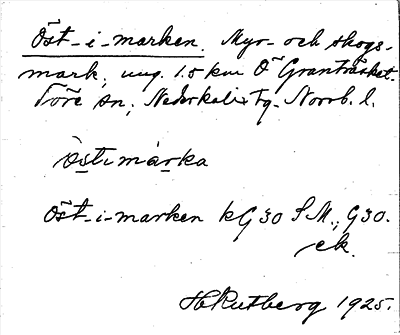 Öst-i-marken. Myr- och skogs-
mark, ung. 1.5 km Ö Granträsket.
Töre sn, Nederkalix tg. Norrb. l.
östimarka
Öst-i-marken kG30 SM; G30.
ck.
H Rutberg 1925.